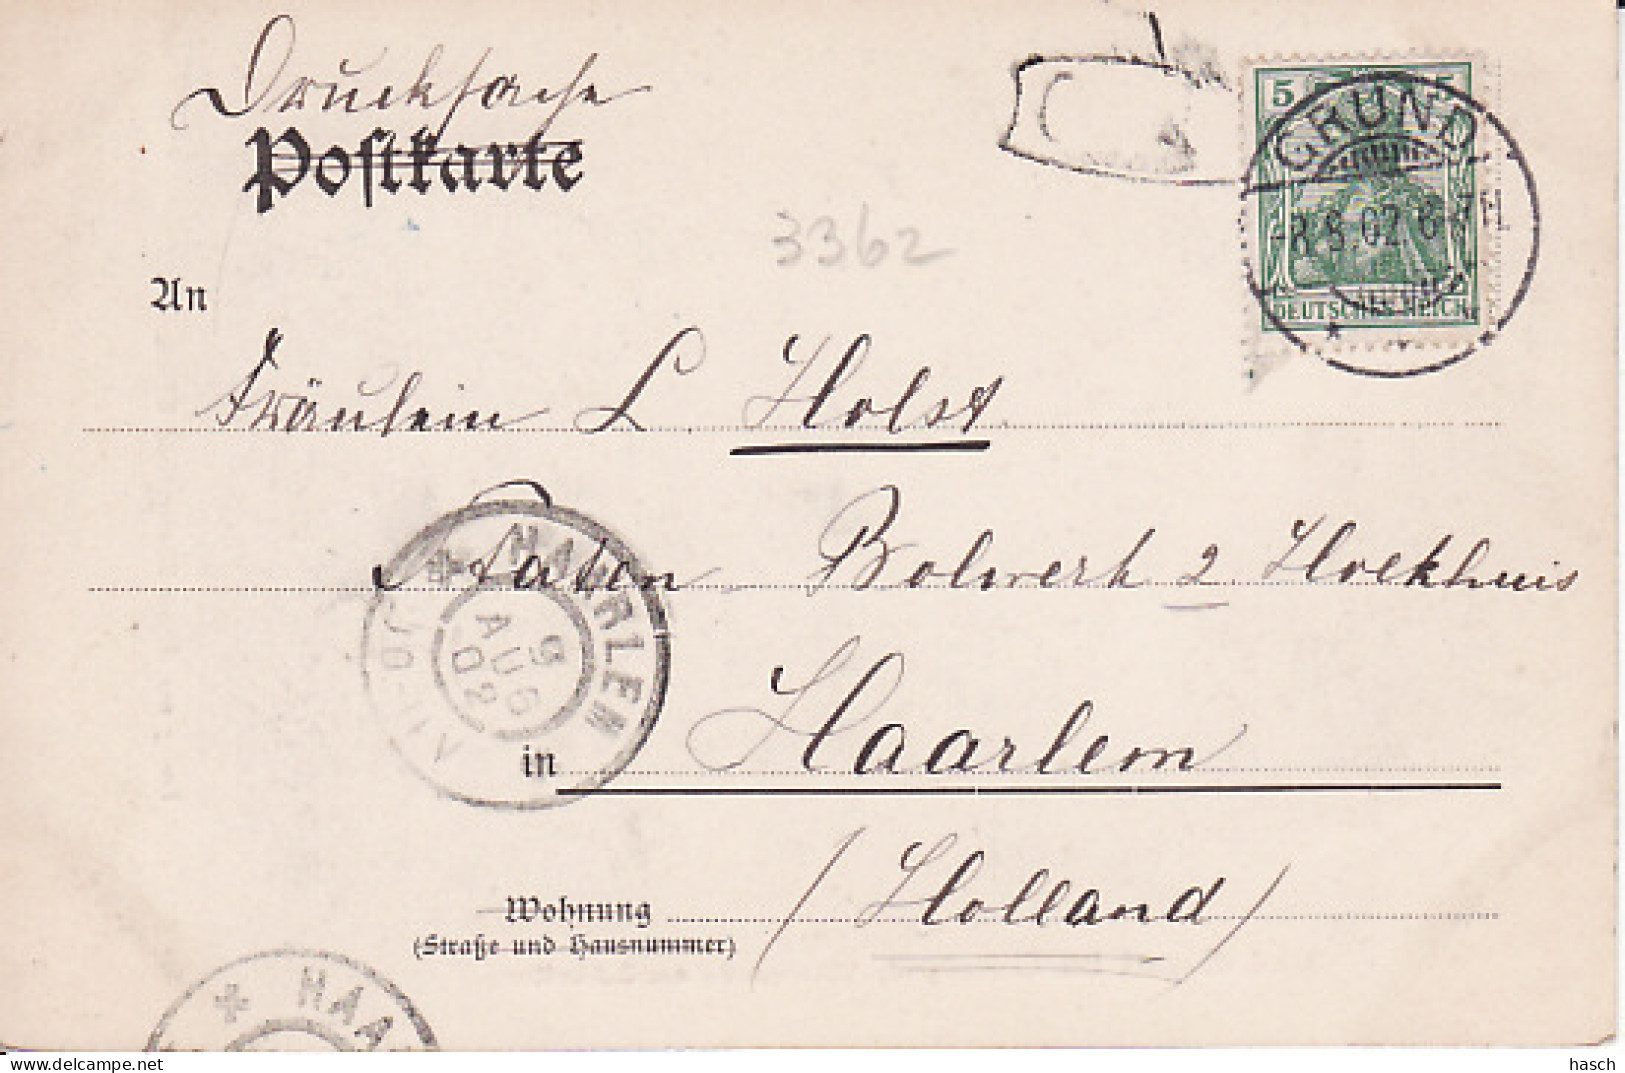 Drucksache
Postkarte
3362
5 5
GRUND
-8.8.02.6-7
DEUTSCHES REICH
An
Fräulein L Holst
Staten Bolwerk 2 Hoekhuis
HAARLEM
9
AUG
02
in Haarlem
(Holland)
Wohnung
(Straße und Hausnummer)
HAA
hasch
delcampe.net